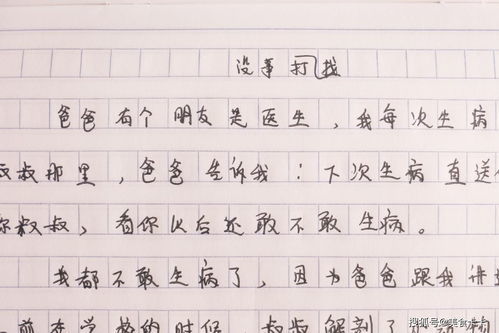 没事打找
爸爸有个朋友是医生，我每次生病
叔那里，爸爸告诉我：下次生病直送
叔叔，看你以后还敢不敢生病。
我都不敢生病了，因为爸爸跟我讲
前在学校的时候 叔叔解剖了
搜狐号@美食